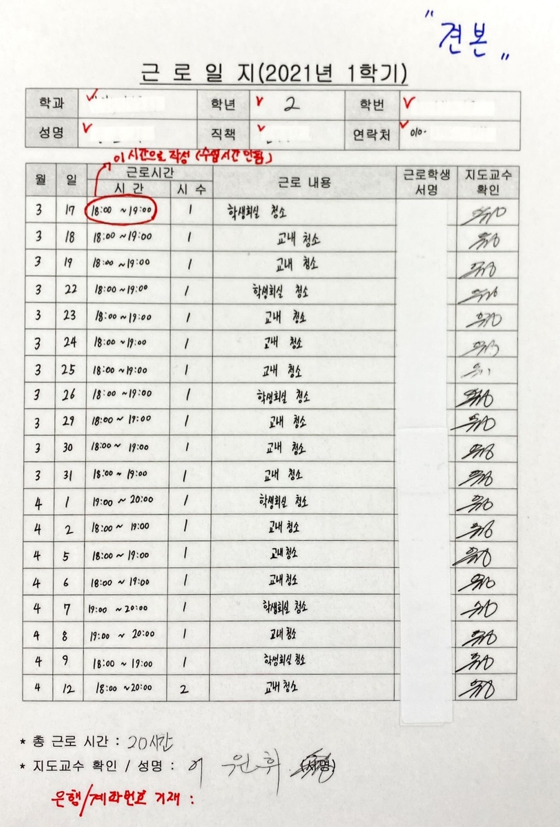 "견본"
근 로 일 지(2021년 1학기)
학과 학년 2 학번
성명 직책 연락처 010-
이 시간으로 작성 (수업시간 안됨)
월 일 근로시간 근로 내용 근로학생 서명 지도교수 확인
시 간 시 수
3 17 18:00 ~ 19:00 1 학생회실 청소
3 18 18:00 ~ 19:00 1 교내 청소
3 19 18:00 ~ 19:00 1 교내 청소
3 22 18:00 ~ 19:00 1 학생회실 청소
3 23 18:00 ~ 19:00 1 교내 청소
3 24 18:00 ~ 19:00 1 교내 청소
3 25 18:00 ~ 19:00 1 교내 청소
3 26 18:00 ~ 19:00 1 학생회실 청소
3 29 18:00 ~ 19:00 1 교내 청소
3 30 18:00 ~ 19:00 1 교내 청소
3 31 18:00 ~ 19:00 1 교내 청소
4 1 19:00 ~ 20:00 1 학생회실 청소
4 2 18:00 ~ 19:00 1 교내 청소
4 5 18:00 ~ 19:00 1 교내 청소
4 6 18:00 ~ 19:00 1 교내 청소
4 7 19:00 ~ 20:00 1 학생회실 청소
4 8 19:00 ~ 20:00 1 교내 청소
4 9 18:00 ~ 19:00 1 학생회실 청소
4 12 18:00 ~ 20:00 2 교내 청소
* 총 근로 시간 : 20시간
* 지도교수 확인 / 성명 : 이 원휘 (서명)
은행/계좌번호 기재 :